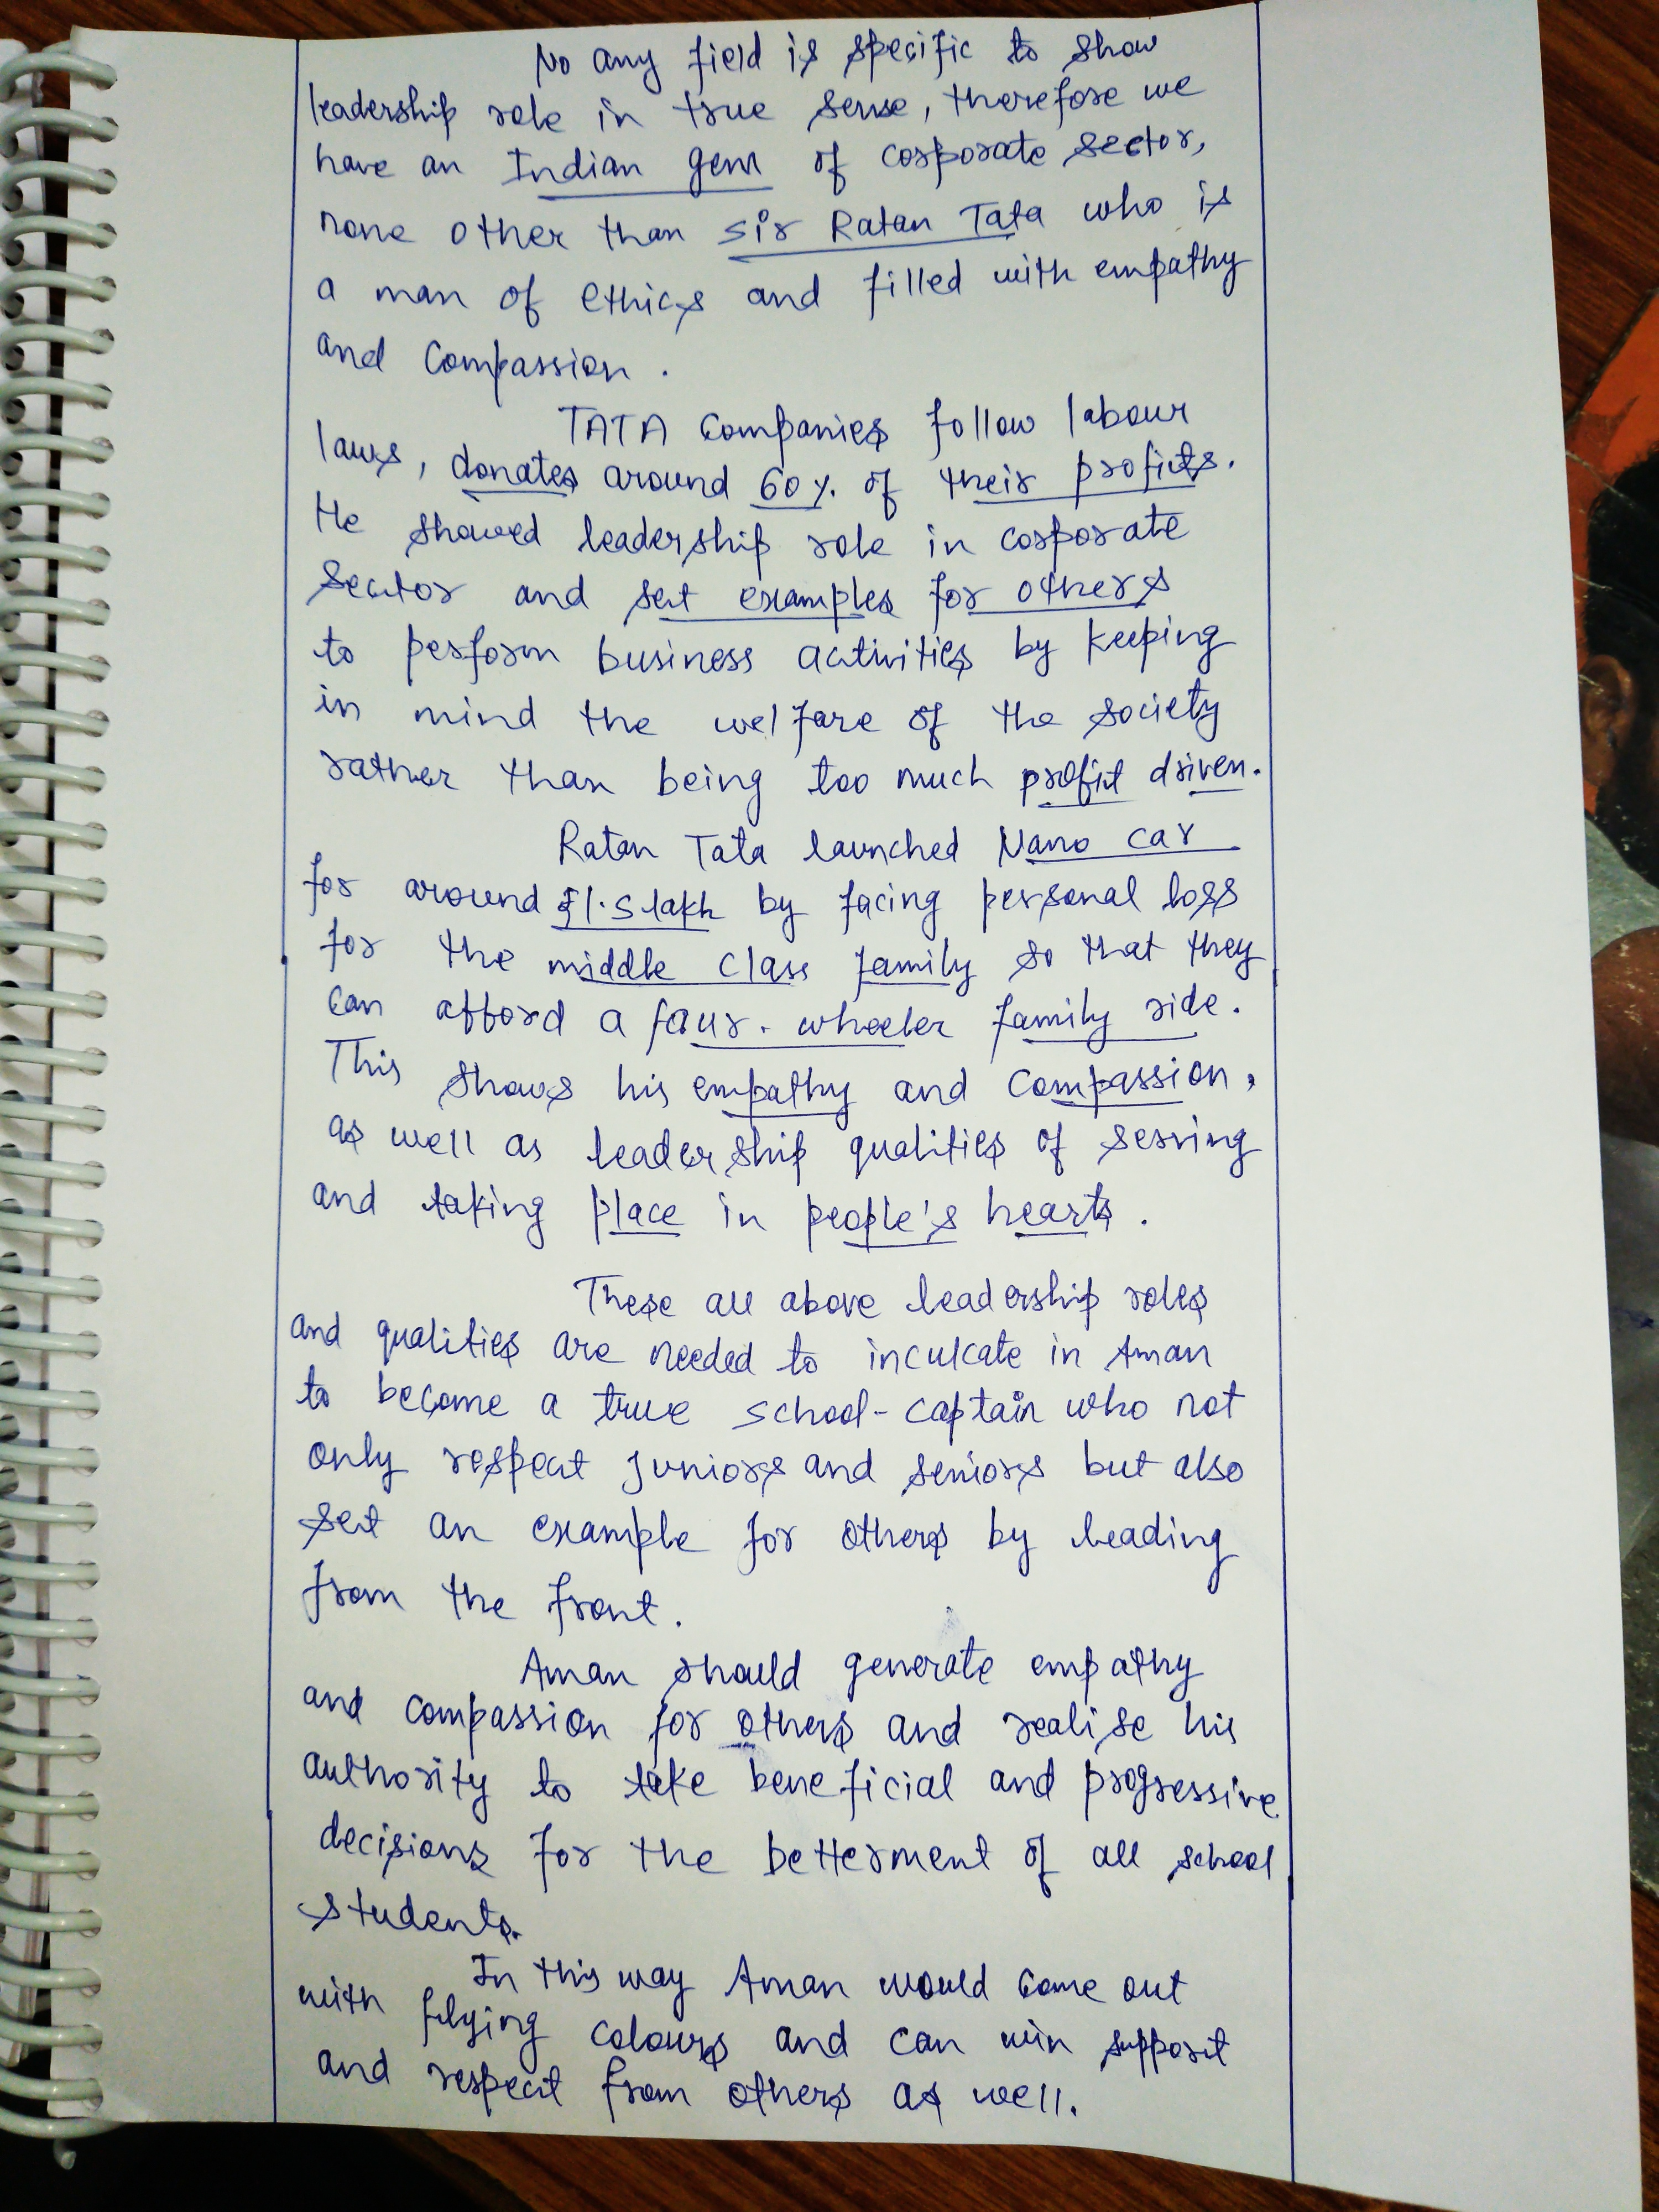 No any field is specific to show
leadership role in true sense, therefore we
have an Indian gem of corporate sector,
none other than sir Ratan Tata who is
a man of ethics and filled with empathy
and compassion.
TATA companies follow labour
laws, donates around 60%. of their profits.
He showed leadership role in corporate
sector and set examples for others
to perform business activities by keeping
in mind the welfare of the society
rather than being too much profit driven.
Ratan Tata launched Nano car
for around ₹1.5 lakh by facing personal loss
for the middle class family so that they
can afford a four-wheeler family ride.
This shows his empathy and compassion,
as well as leadership qualities of serving
and taking place in people's hearts.
These all above leadership roles
and qualities are needed to inculcate in Aman
to become a true school-captain who not
only respect juniors and seniors but also
set an example for others by leading
from the front.
Aman should generate empathy
and compassion for others and realise his
authority to take beneficial and progressive
decisions for the betterment of all school
students.
In this way Aman would come out
with flying colours and can win support
and respect from others as well.